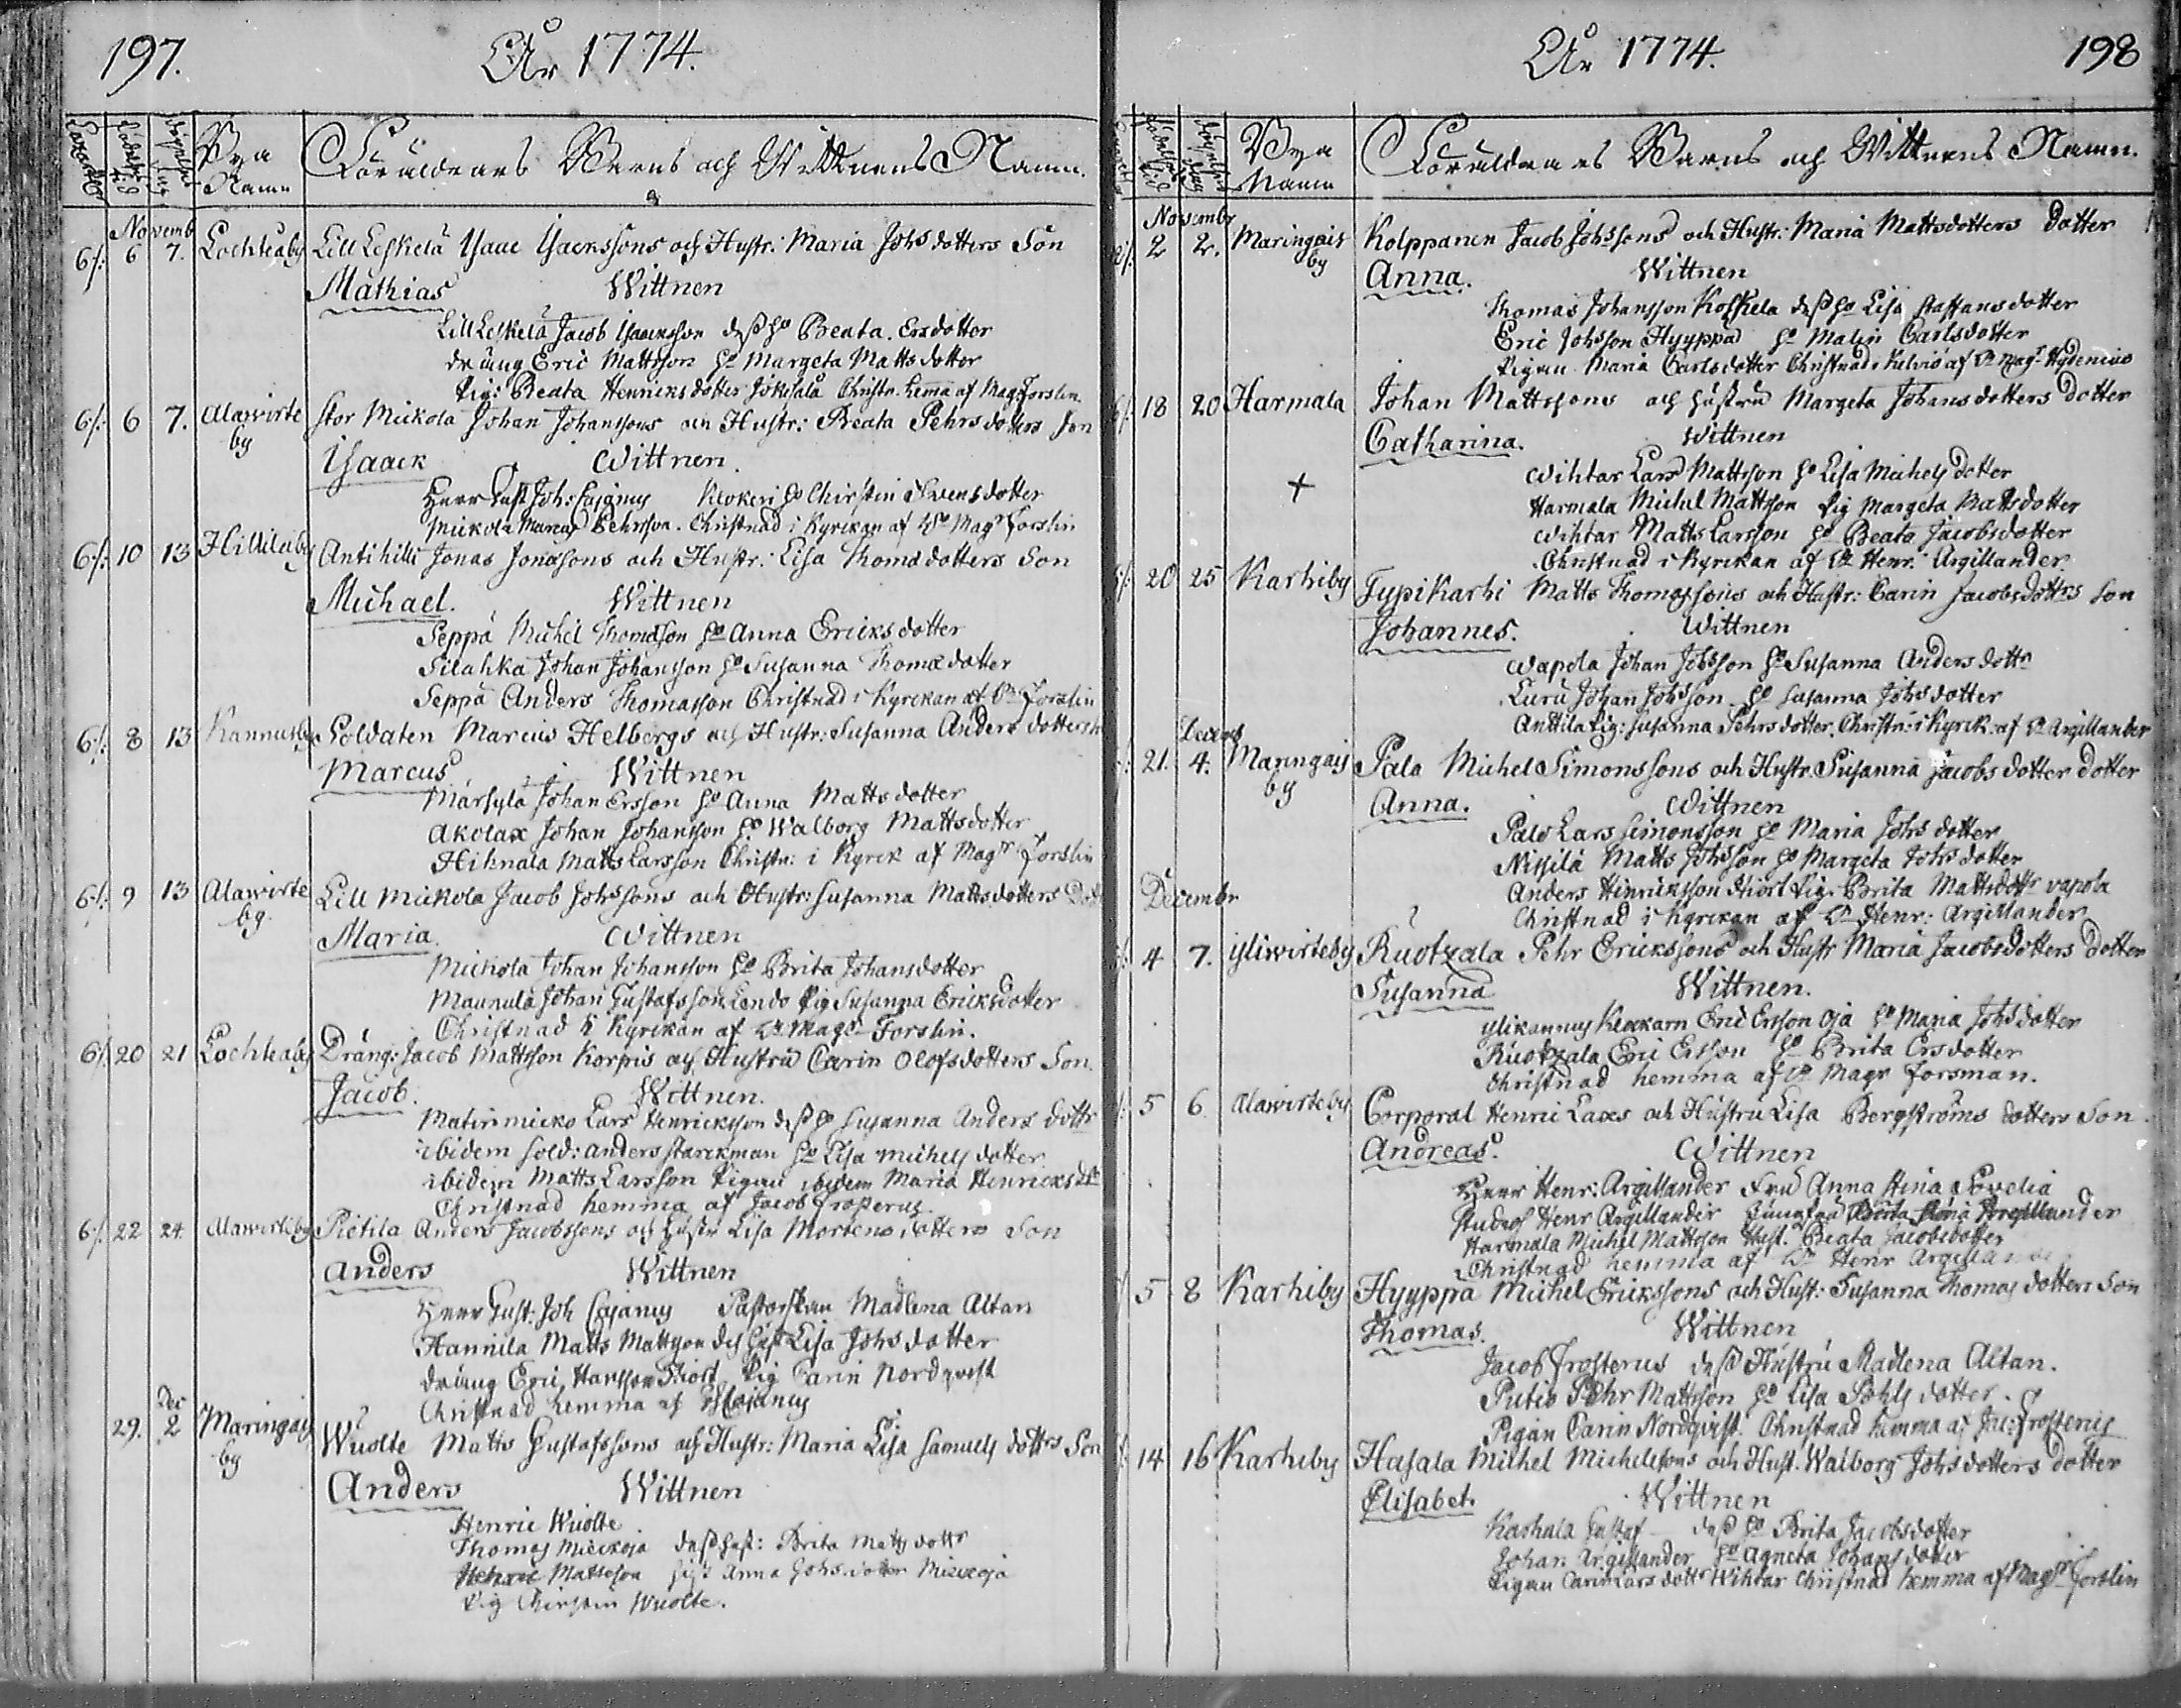 197.
År 1774.
Födelse tid
Döpelse dag
Bya Namn
Föräldrars Barns och Wittnens Namn.
Novemb
6/: 6 7. Lochteaby Lill Leskelä Isaac Isackssons och Hustr: Maria Johsdotters Son
Mathias Wittnen
Lill Leskelä Jacob Isaacksson dess ho Beata Ersdotter
dräng Eric Mattsson ho Margeta Mattsdotter
Pig: Beata Henricksdotter Jokisala Christn. hema af Mag Forslin
6/: 6 7. Alawirte by Stor Mickola Johan Johanssons och Hustr: Beata Pehrsdotters Son
Isaack Wittnen.
Herr Gust Joh: Cajanus Klokeri ho Chirstin Swensdotter
Mickola Marcus Pehrsson. Christnad i Kyrckan af Hr Magr Forslin
6/: 10 13 Hillilaby Antihilli Jonas Jonassons och Hustr: Lisa Thomædotters Son
Michael. Wittnen
Seppä Michel Thomasson ho Anna Ericksdotter
Silahka Johan Johansson ho Susanna Thomædotter
Seppä Anders Thomasson Christnad i Kyrckan af Hr Forslin
6/: 8 13 Kannusby Soldaten Marcus Helbergs och Hustr: Susanna Andersdotters
Marcus Wittnen
Märsylä Johan Ersson ho Anna Mattsdotter
Akolax Johan Johansson ho Walborg Mattsdotter
Hihnala Matts Larsson Christn: i Kyrck af Magr Forslin
6/: 9 13 Alawirte by. Lill Mickola Jacob Johssons och Hustr: Susanna Mattsdotters Dott
Maria. Wittnen
Mickola Johan Johansson ho Brita Johansdotter
Maunula Johan Gustafsson Lando Pig Susanna Ericksdotter
Christnad i Kyrckan af Hr Magr Forslin.
6/: 20 21 Lochteaby Dräng: Jacob Mattsson Korpis och Hustru Carin Olofsdotters Son.
Jacob. Wittnen.
Matinmicko Lars Henricksson dess ho Susanna Anders dottr
ibidem Sold: Anders Starckman ho Lisa Michels dotter
ibidem Matts Larsson Pigan ibidem Maria Henricks dtr
Christnad hemma af Jacob Frosterus
6/: 22 24. Alawirteby Pietila Anders Jacobssons och hustr Lisa Mortensdotters Son
Anders Wittnen
Herr Gust: Joh Cajanus Pastorskan Madlena Altan
Hannila Matts Mattsson dess hust Lisa Johsdotter
dräng Eric Hansson Hiort Pig Carin Nordqvist
Christnad hemma af Cajanus
Dec
29. 2 Maringais by Wuolte Matts Gustafssons och Hustr: Maria Lisa Samuels dottrs Son
Anders Wittnen
Henric Wuolte
Thomas Mieckoja dess hust: Brita Matts dottr
Mattsson hust Anna Johsdotter Mieckoja
Pig Chirstin Wuolte.
År 1774.
198
Födelse tid
Döpelse dag
Bya Namn
Föräldrars Barns och Wittnens Namn.
Novembr
2 2. Maringais by Kolppanen Jacob Johssons och Hustr: Maria Mattsdotters dotter
Anna. Wittnen
Thomas Johansson Koskela dess ho Lisa Staffansdotter
Eric Johsson Hyyppä ho Malin Carlsdotter
Pigan Maria Carlsdotter Christnad i Kelviå af Hr Magr Hydenius
18 20 Harmala Johan Mattssons och hustru Margeta Johansdotters dotter
Catharina. Wittnen
Wihtar Lars Mattsson ho Lisa Michels dotter
+ Harmala Michel Mattsson Pig Margeta Mattsdotter
Wihtar Matts Larsson ho Beata Jacobsdotter
Christnad i Kyrckan af Hr Henr: Argillander
20 25 Karhiby Typikarhi Matts Thomassons och Hustr: Carin Jacobsdottrs Son
Johannes. Wittnen
Wapola Johan Johsson ho Susanna Andersdottr
Luru Johan Johsson ho Susanna Johsdotter
Anttila Pig: Susanna Pehrsdotter. Christn: i Kyrck. af Hr Argillander
Decemb
21. 4. Maringais by Palo Michel Simonssons och Hustr. Susanna Jacobsdotter dotter
Anna. Wittnen
Palo Lars Simonsson ho Maria Johsdotter
Nissilä Matts Johsson ho Margeta Johsdotter
Anders Hinricksson Hiort Pig: Brita Mattsdottr Vapola
Christnad i Kyrckan af Hr Henr: Argillander
Decembr
4 7. Yliwirteby Ruotzala Pehr Erickssons och Hustr Maria Jacobsdotters dotter
Susanna Wittnen.
Ylikannus Klockarn Eric Ersson Oja ho Maria Johsdotter
Ruotzala Eric Ersson ho Brita Ersdotter
Christnad hemma af Hr Magr Forsman.
5 6 Alawirteby Corporal Henric Laxes och Hustru Lisa Bergströms dotters Son.
Andreas. Wittnen
Herr Henr: Argillander Fru Anna Stina Sovelia
Studios Henr Argillander Jungfru Argillander
Harmala Michel Mattsson Hust. Beata Jacobsdotter
Christnad hemma af Hr Henr Argillander
5 8 Karhiby Hyyppä Michel Erickssons och Hust: Susanna Thomas dotters Son
Thomas. Wittnen
Jacob Frosterus dess Hustru Madlena Altan.
Putio Pehr Mattsson ho Lisa Pohls dotter.
Pigan Carin Nordqvist. Christnad hemma af Jac: Frosterus
14 16 Karhiby Hasala Michel Michelssons och Hust. Walborg Johsdotters dotter
Elisabet. Wittnen
Kashala Gustaf dess ho Brita Jacobsdotter
Johan Argillander ho Agneta Johansdotter
Pigan Carin Larsdottr Wihtar Christnad hemma af Magr Forslin